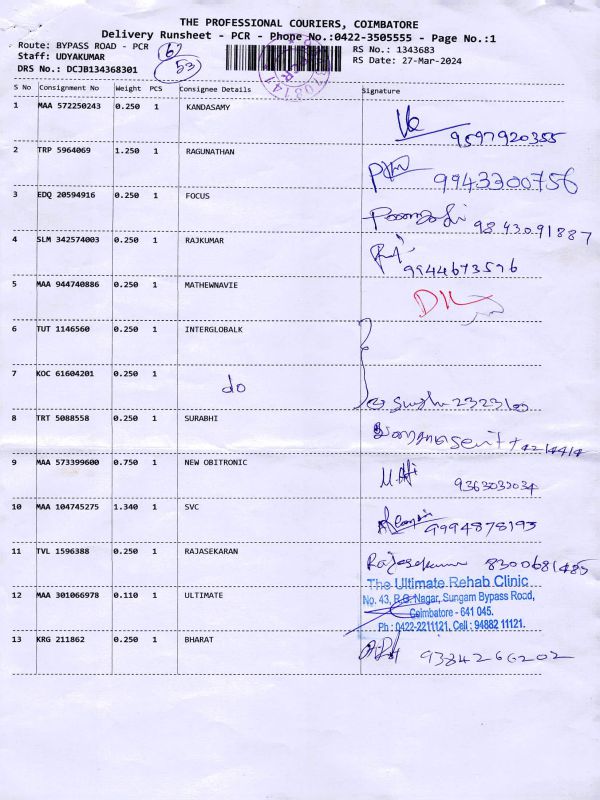 THE PROFESSIONAL COURIERS, COIMBATORE
Delivery Runsheet - PCR - Phone No.:0422-3505555 - Page No.:1
Route: BYPASS ROAD - PCR
6
RS No.: 1343683
Staff: UDYAKUMAR
RS Date: 27-Mar-2024
DRS No.: DCJB134368301
53
S No Consignment No Weight PCS Consignee Details Signature
1 MAA 572250243 0.250 1 KANDASAMY
9597920355
2 TRP 5964069 1.250 1 RAGUNATHAN
9943300756
3 EDQ 20594916 0.250 1 FOCUS
9843091887
4 SLM 342574003 0.250 1 RAJKUMAR
9944673596
5 MAA 944740886 0.250 1 MATHEWNAVIE
6 TUT 1146560 0.250 1 INTERGLOBALK
7 KOC 61604201 0.250 1 do
2323100
8 TRT 5088558 0.250 1 SURABHI
9 MAA 573399600 0.750 1 NEW OBITRONIC
9363032034
10 MAA 104745275 1.340 1 SVC
9994878193
11 TVL 1596388 0.250 1 RAJASEKARAN
Rajasekaran 8300681485
12 MAA 301066978 0.110 1 ULTIMATE
The Ultimate Rehab Clinic
No. 43, R.G. Nagar, Sungam Bypass Road,
Coimbatore - 641 045.
Ph : 0422-2211121, Cell : 94882 11121.
13 KRG 211862 0.250 1 BHARAT
9384266202